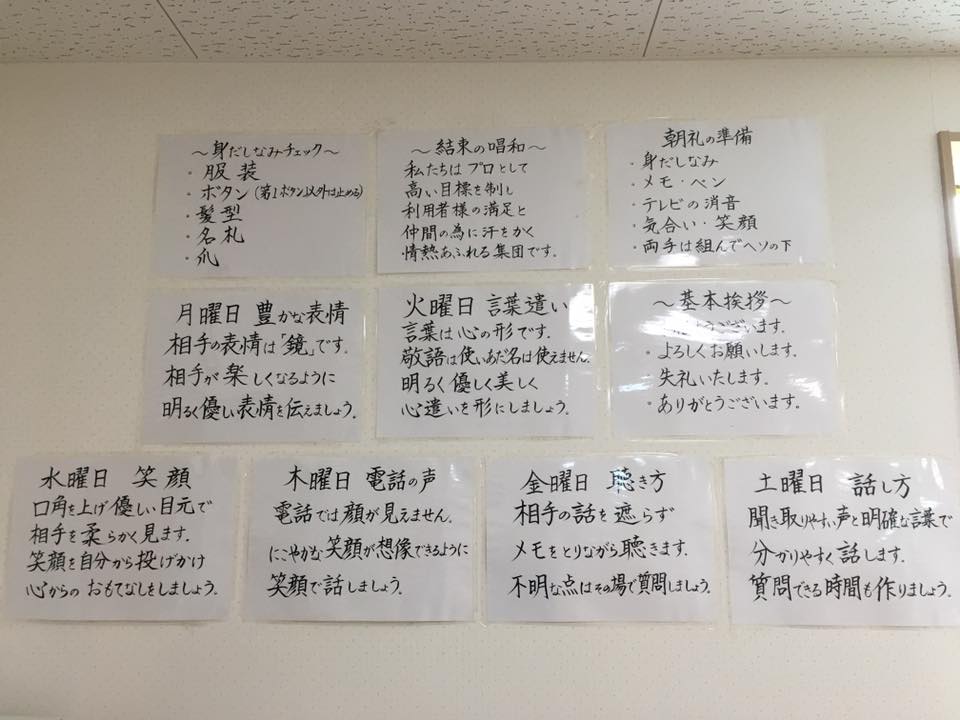 ～身だしなみチェック～
・服装
・ボタン(第1ボタン以外は止める)
・髪型
・名札
・爪
～結束の唱和～
私たちはプロとして
高い目標を制し
利用者様の満足と
仲間の為に汗をかく
情熱あふれる集団です。
朝礼の準備
・身だしなみ
・メモ・ペン
・テレビの消音
・気合い・笑顔
・両手は組んでヘソの下
月曜日 豊かな表情
相手の表情は「鏡」です。
相手が楽しくなるように
明るく優しい表情を伝えましょう。
火曜日 言葉遣い
言葉は心の形です。
敬語は使いあだ名は使えません。
明るく優しく美しく
心遣いを形にしましょう。
～基本挨拶～
うございます。
・よろしくお願いします。
・失礼いたします。
・ありがとうございます。
水曜日 笑顔
口角を上げ優しい目元で
相手を柔らかく見ます。
笑顔を自分から投げかけ
心からのおもてなしをしましょう。
木曜日 電話の声
電話では顔が見えません。
にこやかな笑顔が想像できるように
笑顔で話しましょう。
金曜日 聴き方
相手の話を遮らず
メモをとりながら聴きます。
不明な点はその場で質問しましょう。
土曜日 話し方
聞き取りやすい声と明確な言葉で
分かりやすく話します。
質問できる時間も作りましょう。